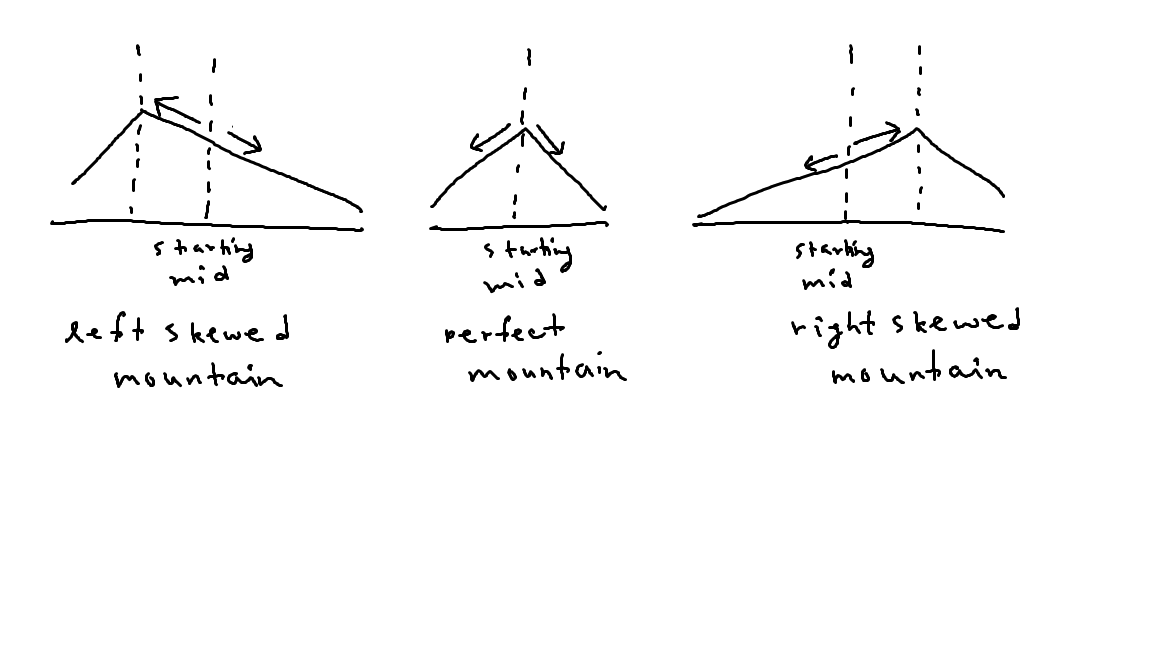 starting
mid
left skewed
mountain
starting
mid
perfect
mountain
starting
mid
right skewed
mountain